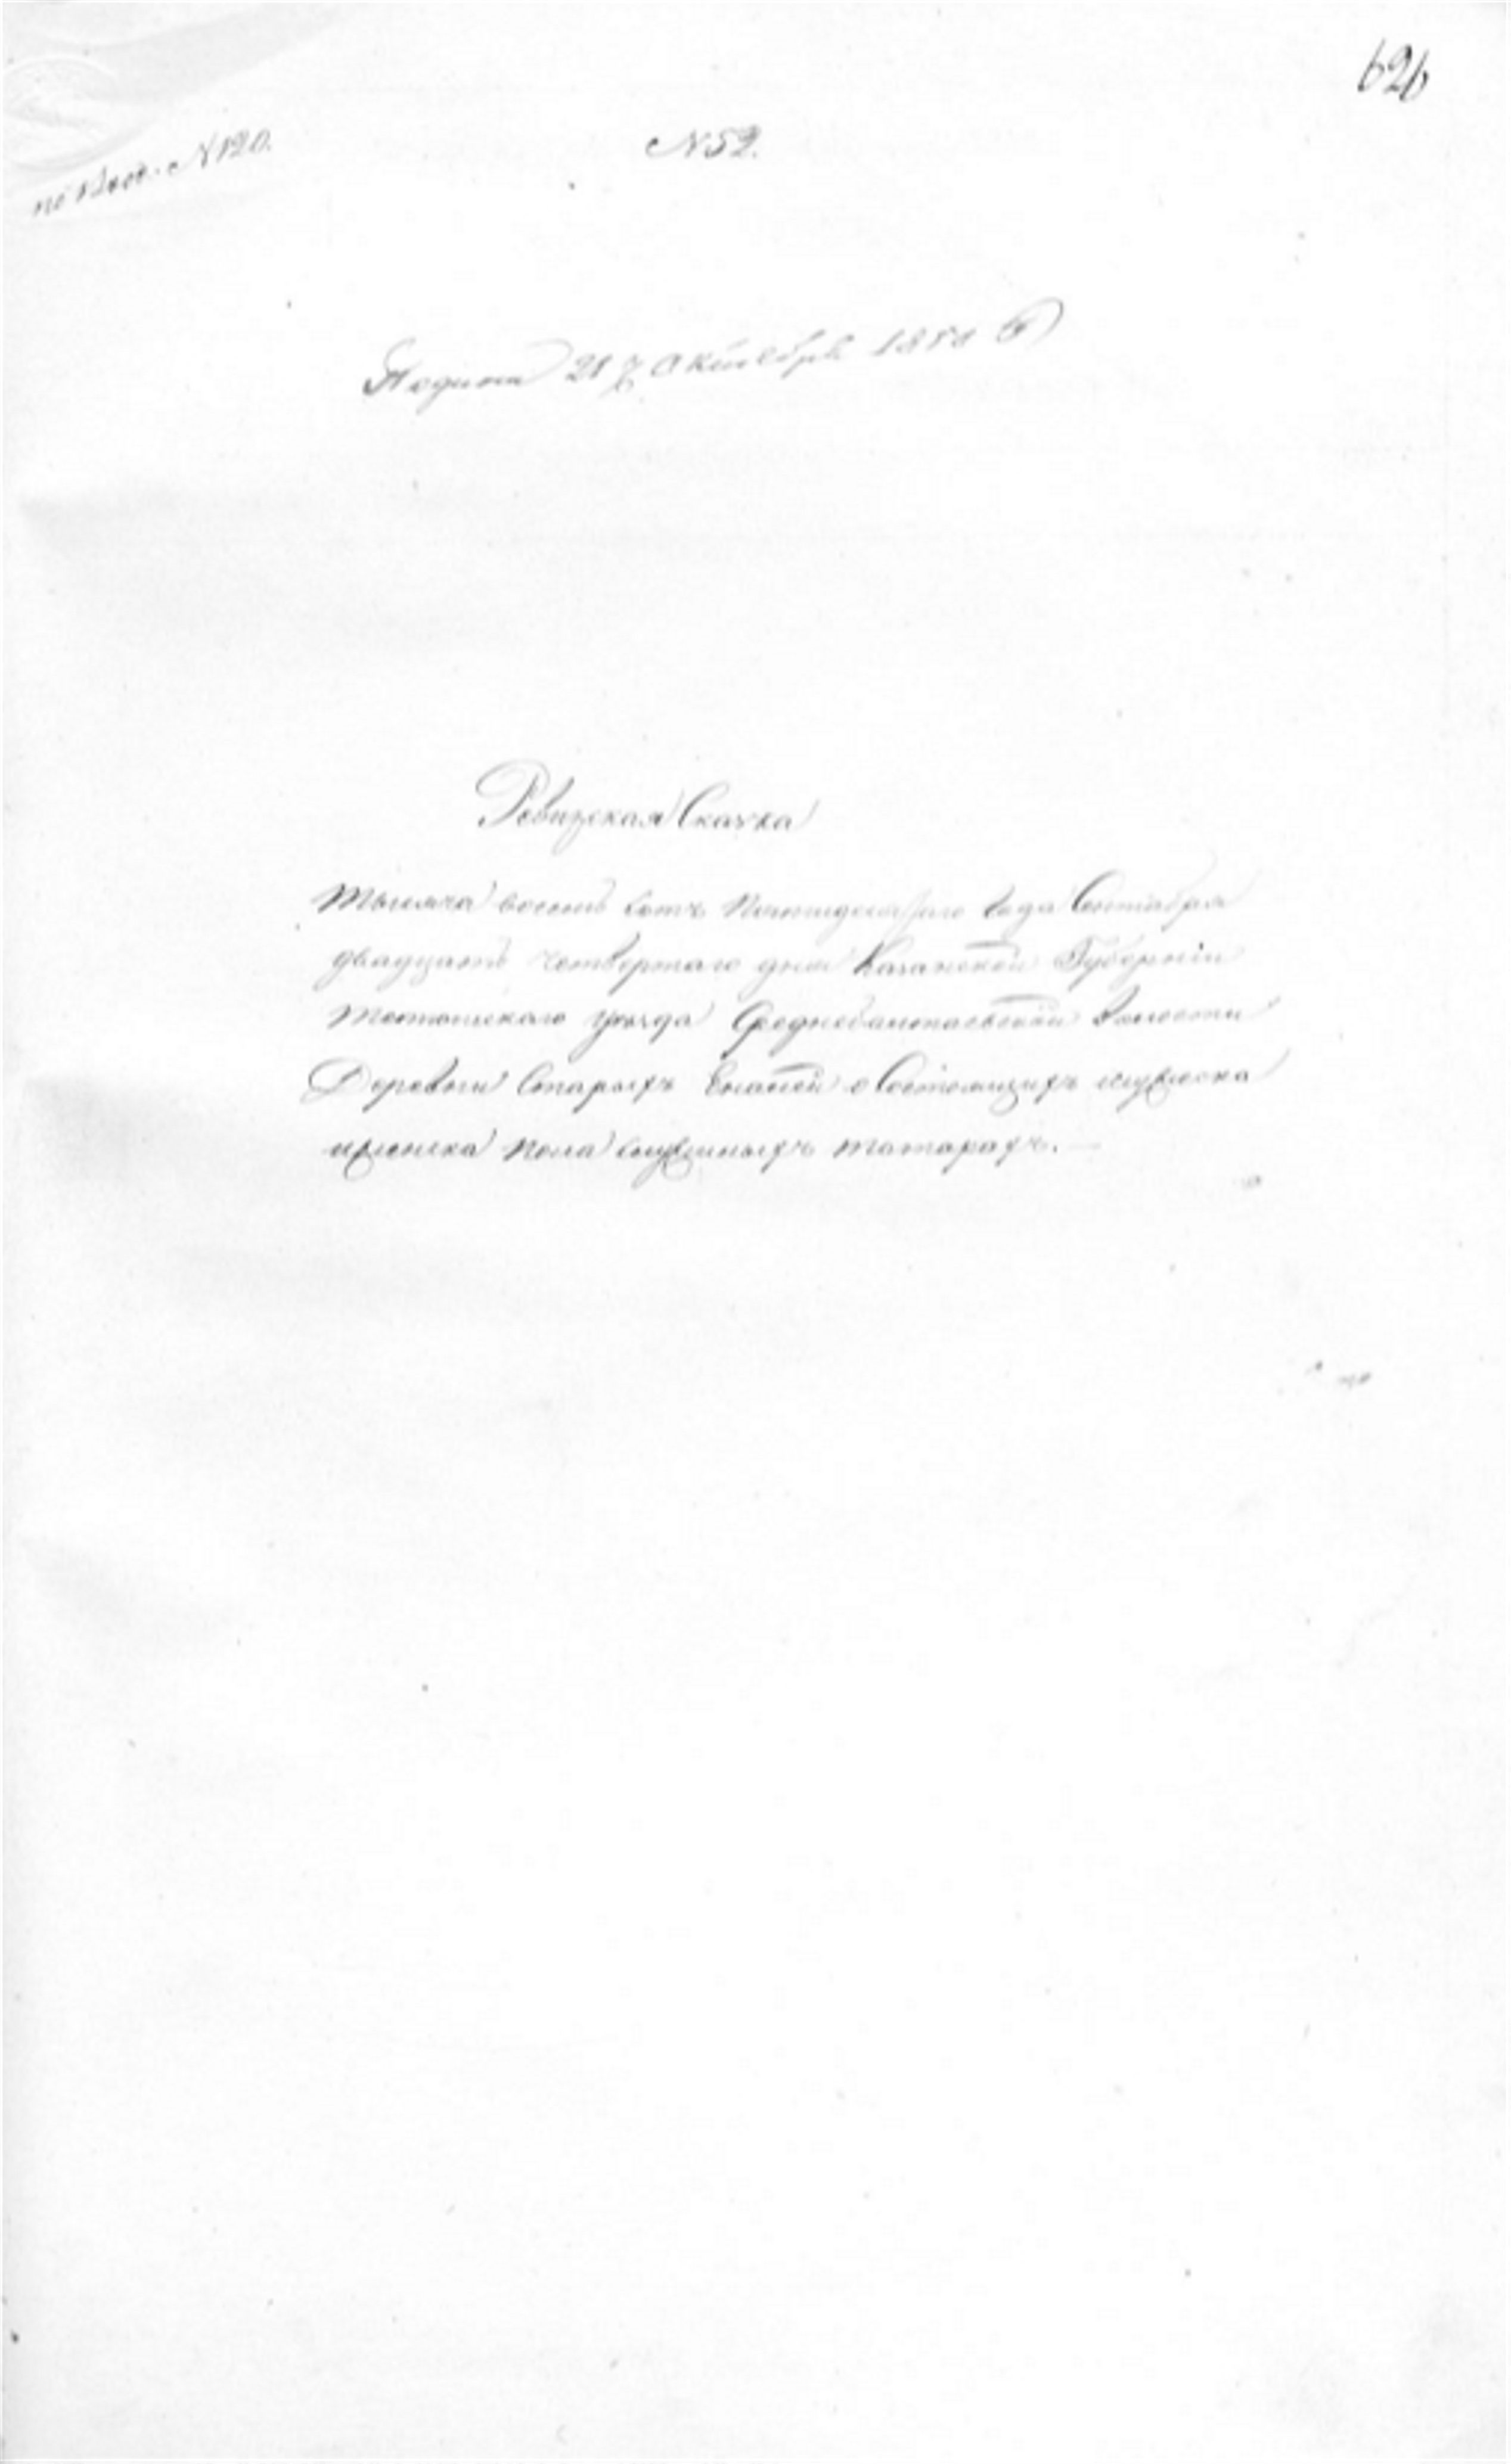 626
N 52.
N 120.
Подана 21 Октября 1850
Ревизская Сказка
тысяча восемь сотъ пятидесятаго года Сентября
двадцать четвертаго дня Казанской Губернии
Тетюшскаго уезда Среднебалтаевской Волости
Деревни Старыхъ Еналей о Состоящихъ мужеска
и женска пола служилыхъ татарахъ. —